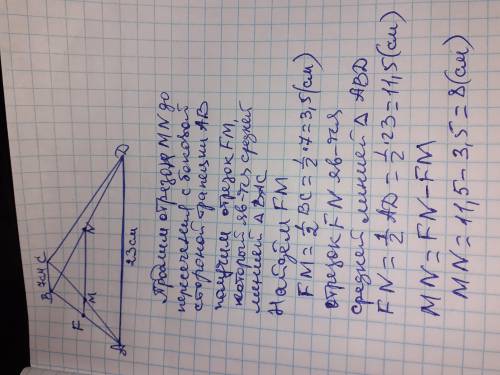 B 7см C
F M N
A 23см D
Продлим отрезок MN до
пересечения с боковой
стороной трапеции AB
получим отрезок FM,
который яв-тся средней
линией Δ BAC
Найдём FM
FM = 1/2 BC = 1/2 · 7 = 3,5 (см)
отрезок FN яв-тся
средней линией Δ ABD
FN = 1/2 AD = 1/2 · 23 = 11,5 (см)
MN = FN - FM
MN = 11,5 - 3,5 = 8 (см)